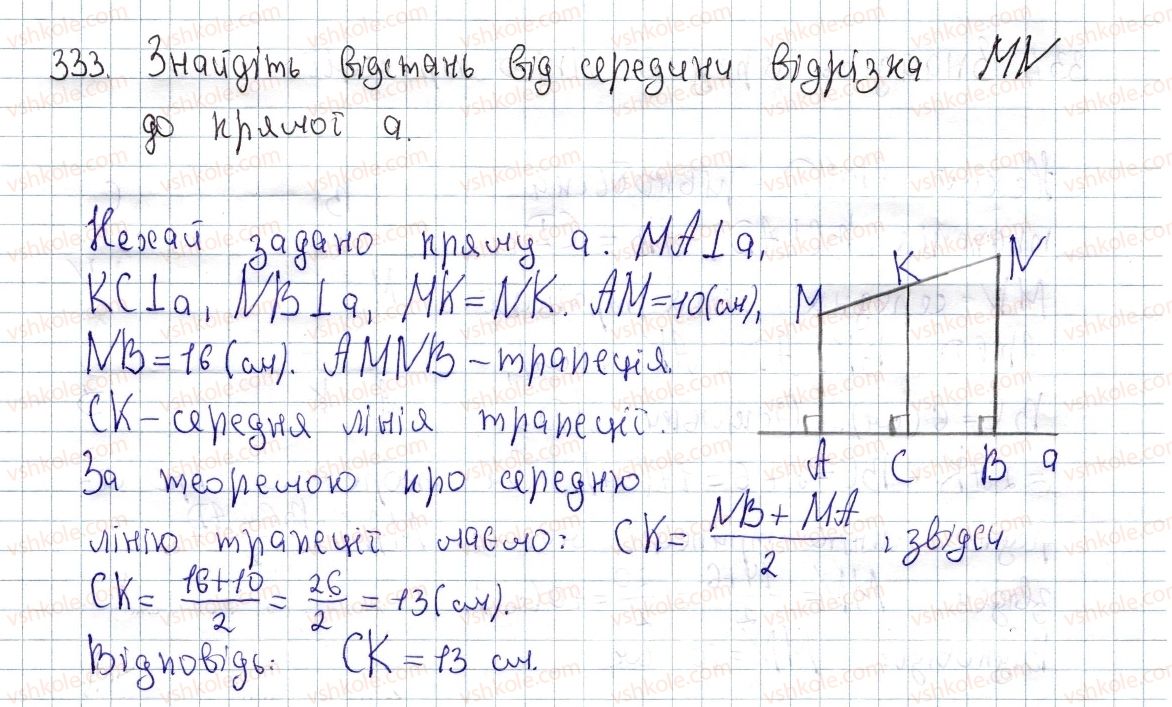 333. Знайдіть відстань від середини відрізка MN
до прямої a.
Нехай задано пряму a. MA⊥a,
KC⊥a, NB⊥a, MK=NK. AM=10(см),
NB=16(см). AMNB – трапеція.
CK – середня лінія трапеції.
За теоремою про середню
лінію трапеції маємо: CK = (NB+MA)/2, звідси
CK = (16+10)/2 = 26/2 = 13(см).
Відповідь: CK = 13 см.
M K N
A C B a